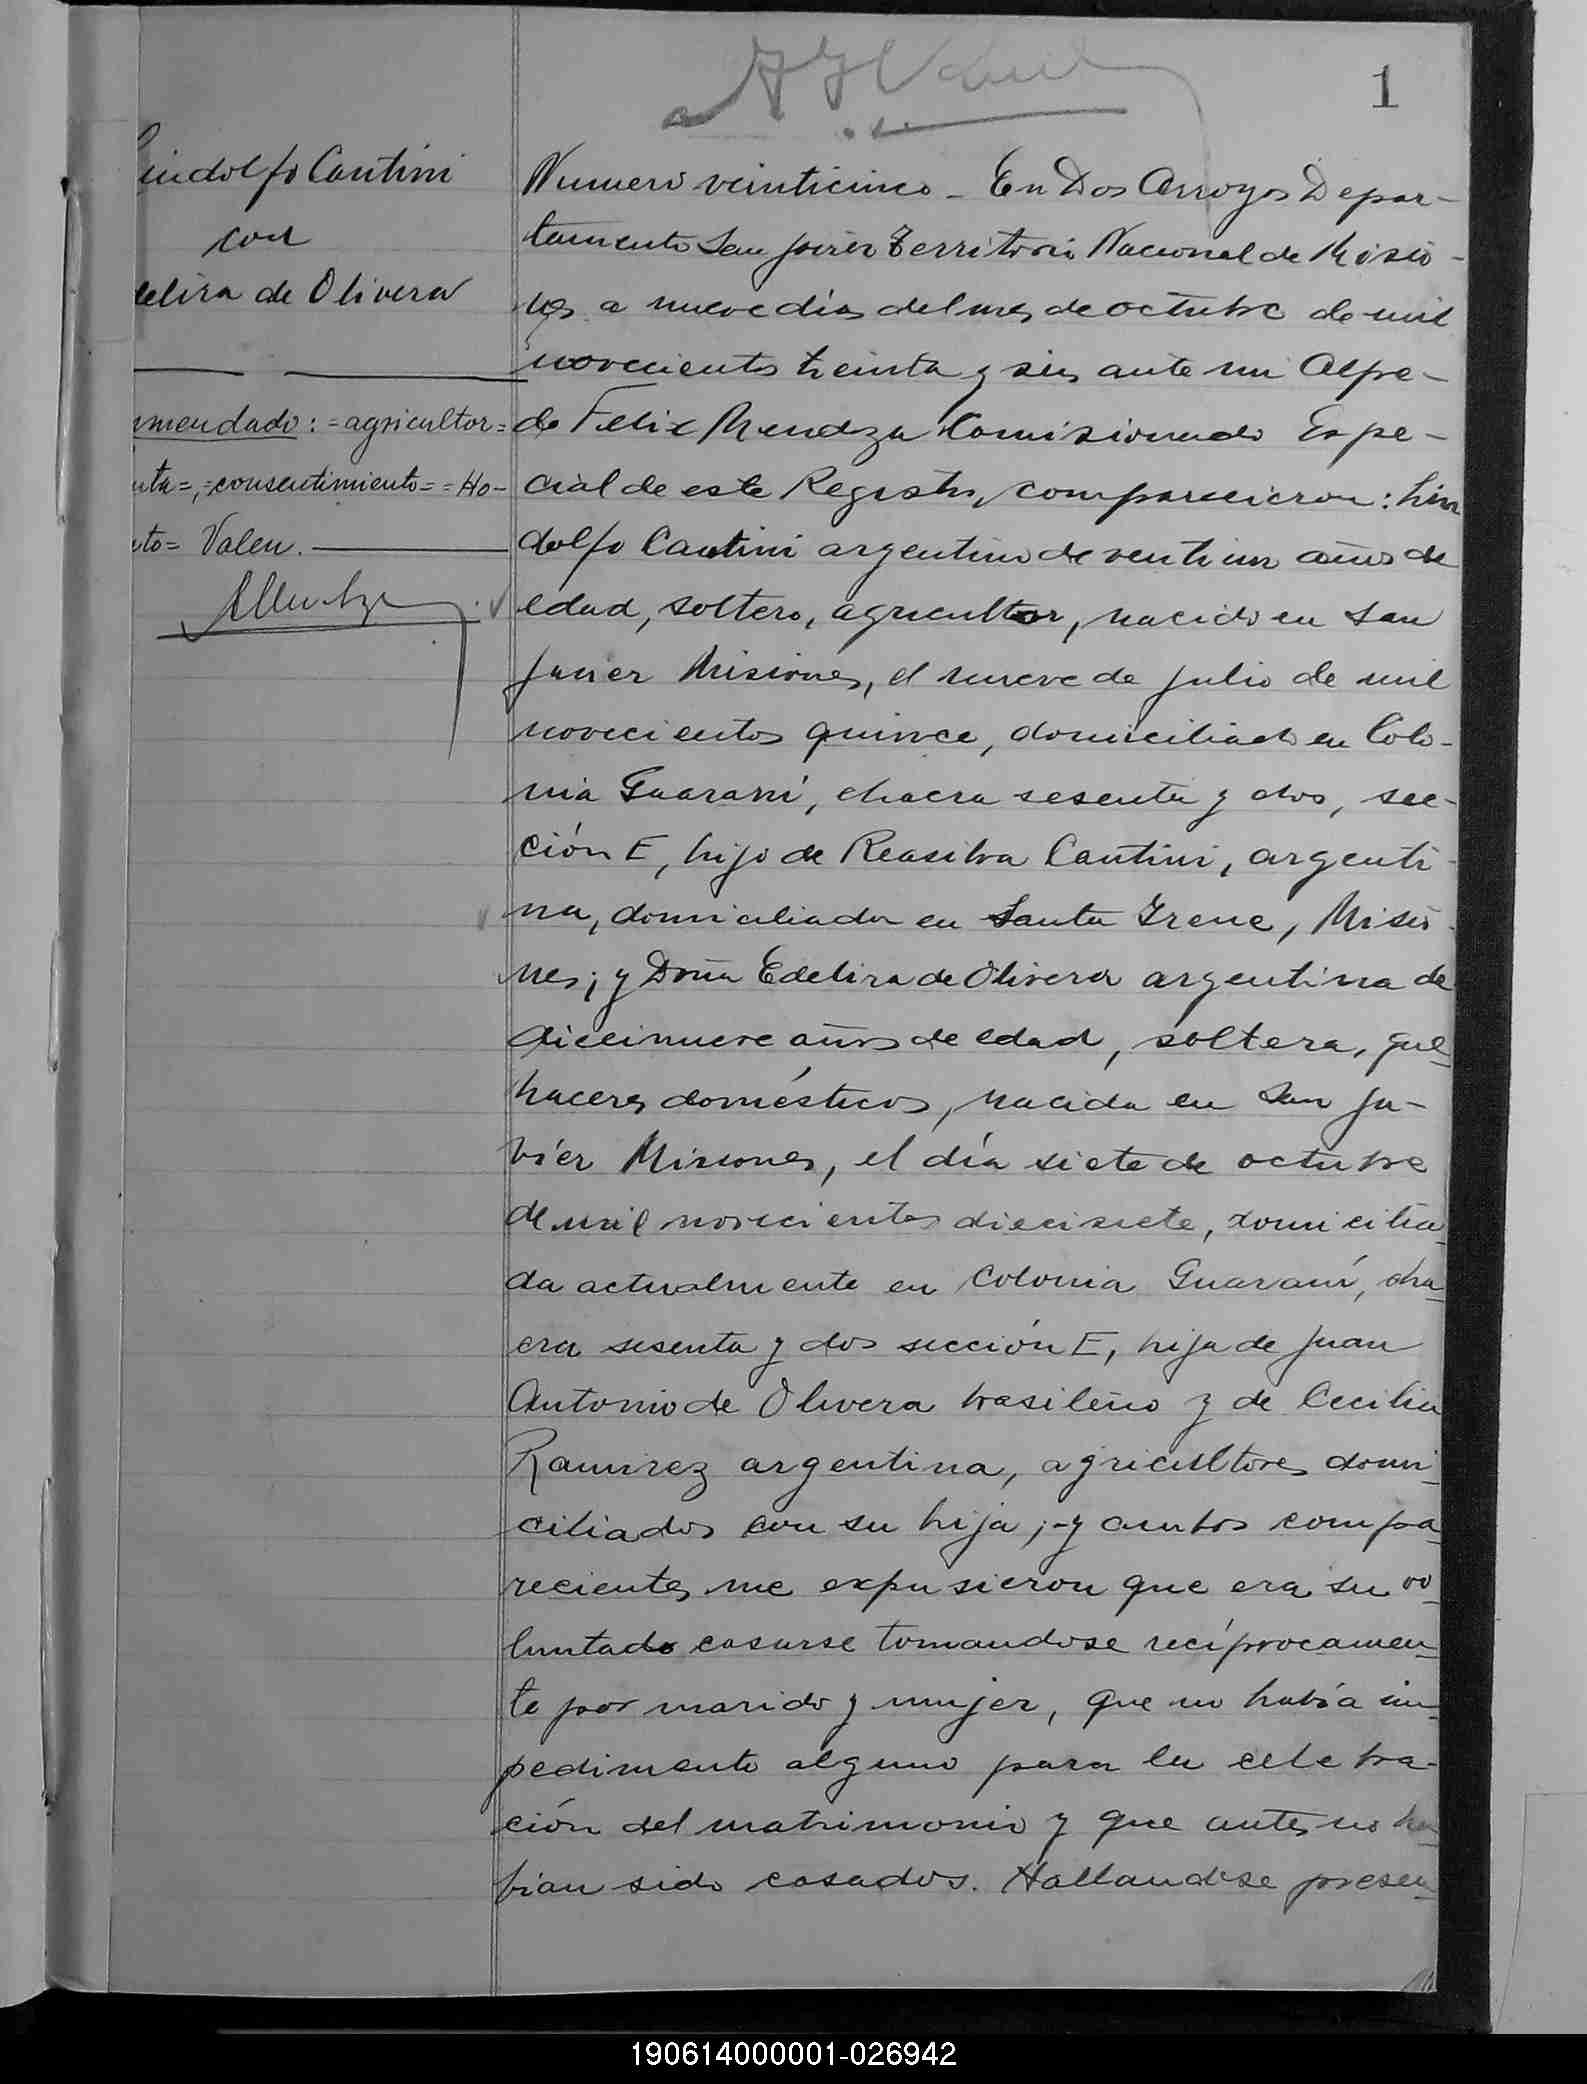 1
Lindolfo Cantini
con
delira de Olivera
Numero veinticinco - En Dos Arroyos Depar-
tamento San Javier Territorio Nacional de Misio-
nes a nueve días del mes de octubre de mil
novecientos treinta y seis ante mi Alfre-
do Felix Mendoza Comisionado Espe-
cial de este Registro, comparecieron: Lin
dolfo Cantini argentino de ventiun años de
edad, soltero, agricultor, nacido en San
Javier Misiones, el nueve de julio de mil
novecientos quince, domiciliado en Colo-
nia Guaraní, chacra sesenta y dos, sec-
ción E, hijo de Reasilva Cantini, argenti-
na, domiciliada en Santa Irene, Misio
nes; y Doña Edelira de Olivera argentina de
diecinueve años de edad, soltera, que_
haceres domésticos, nacida en San Ja-
vier Misiones, el día siete de octubre
de mil novecientos diecisiete, domicilia_
da actualmente en Colonia Guaraní, cha_
cra sesenta y dos sección E, hija de Juan
Antonio de Olivera brasileño y de Cecilia
Ramirez argentina, agricultores domi_
ciliados con su hija;-y ambos compa_
recientes me expusieron que era su vo_
luntad casarse tomandose recíprocamen_
te por marido y mujer, que no había im_
pedimento alguno para la celebra-
ción del matrimonio y que antes no ha_
bian sido casados. Hallandose presen_
nmendado: =agricultor=
nta=, =consentimiento= =Ho-
to= Valen.
190614000001-026942